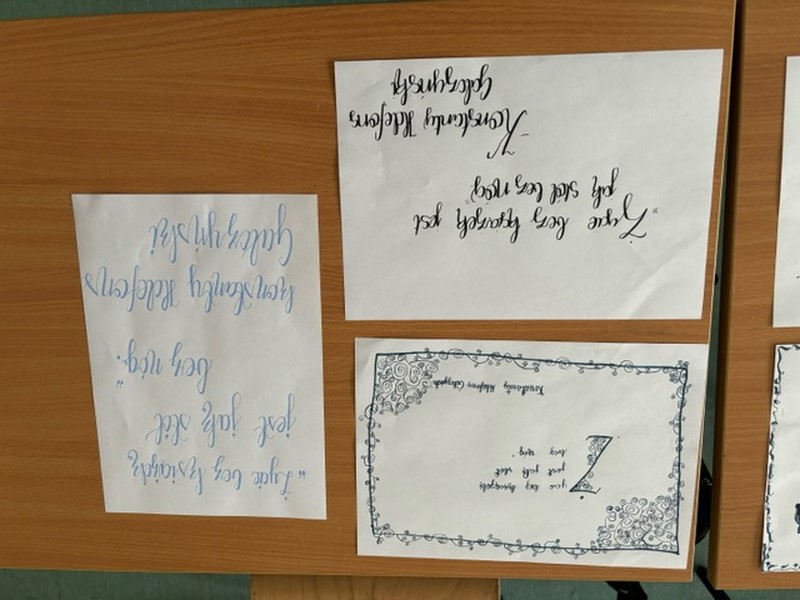 „Życie bez książek jest
jak stół bez nóg"
Konstanty Ildefons
Gałczyński
„życie bez książek
jest jak stół
bez nóg."
konstanty Ildefons
Gałczyński
Życie bez książek
jest jak stół
bez nóg."
Konstanty Ildefons Gałczyński